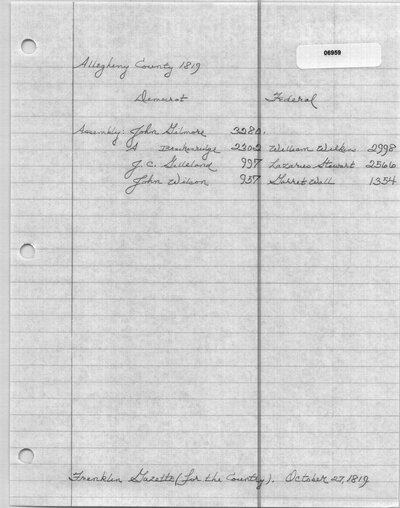 06959
Allegheny County 1819
Democrat Federal
Assembly: John Gilmore 3280.
A Brackenridge 2302 William Wilkin 2998
J.C. Gilleland 997 Lazarus Stewart 2566
John Wilson 957 Garret Wall 1354
Franklin Gazette (for the Country). October 27, 1819